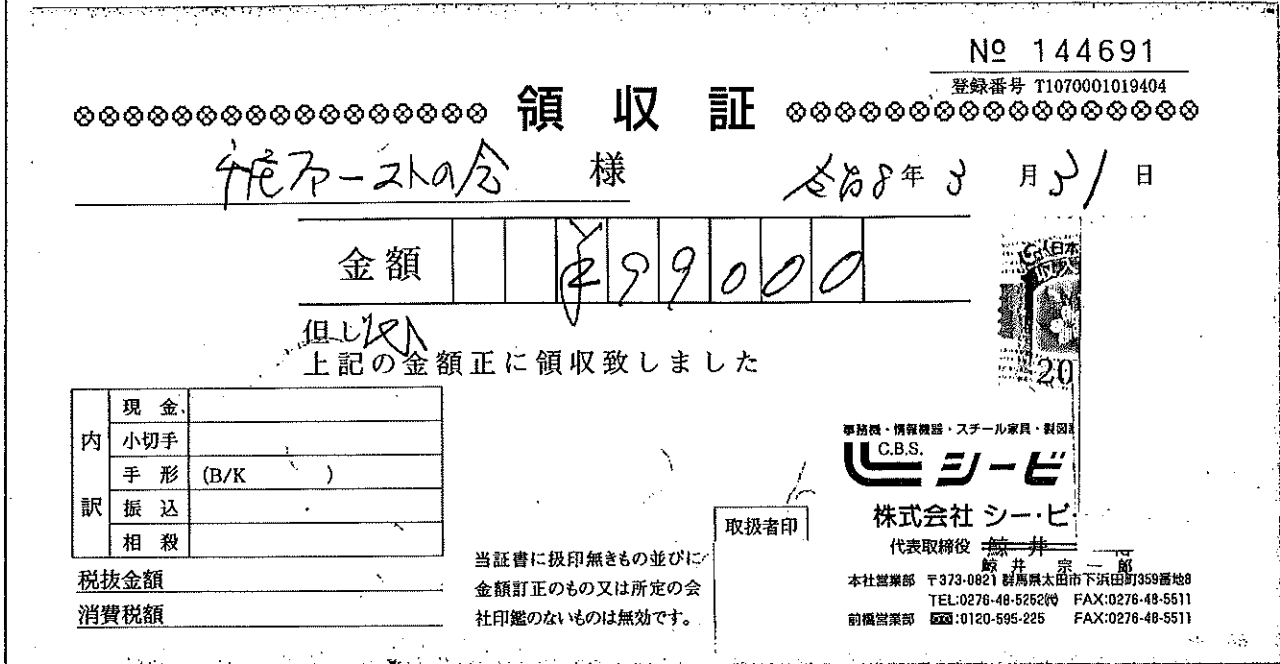 № 144691
登録番号 T1070001019404
領収証
ファーストの会 様
令和8年3月31日
金額 ¥99000
但し
上記の金額正に領収致しました
内訳
現金
小切手
手形 (B/K )
振込
相殺
税抜金額
消費税額
当証書に扱印無きもの並びに
金額訂正のもの又は所定の会
社印鑑のないものは無効です。
取扱者印
日本
20
事務機・情報機器・スチール家具・製図
C.B.S. シービ
株式会社 シー・ビ・
代表取締役 鯨井
鯨井 宗一郎
本社営業部 〒373-0821 群馬県太田市下浜田町359番地8
TEL:0276-48-5252㈹ FAX:0276-48-5511
前橋営業部 :0120-595-225 FAX:0276-48-5511